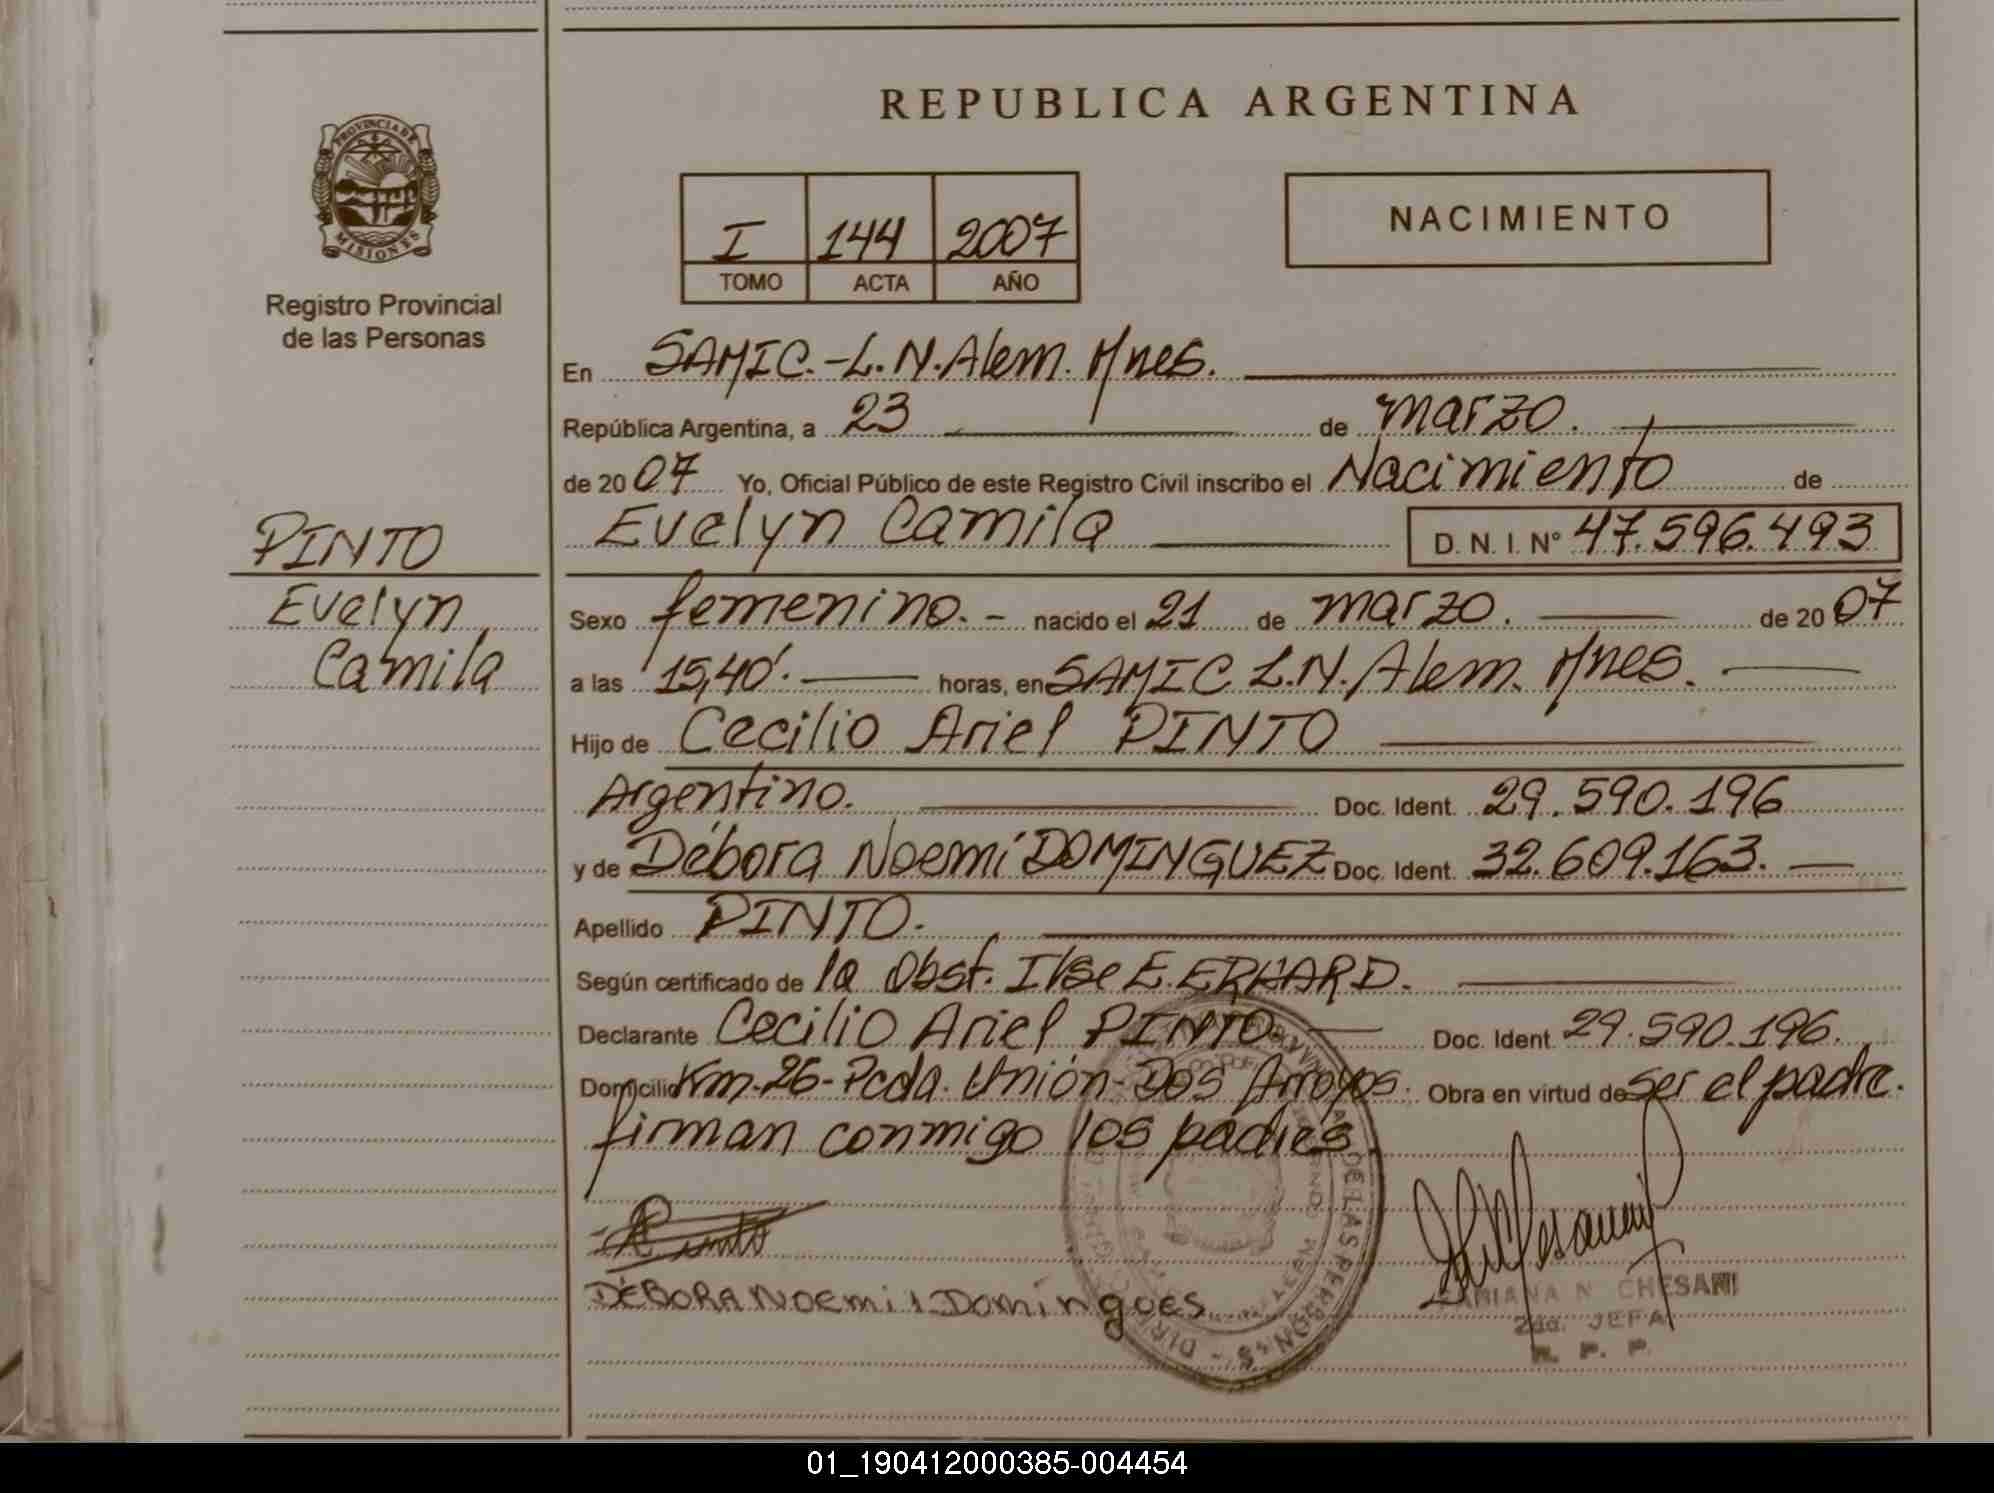 REPUBLICA ARGENTINA
PROVINCIA DE
MISIONES
Registro Provincial
de las Personas
I 144 2007
TOMO ACTA AÑO
NACIMIENTO
En SAMIC.-L.N.Alem. Mnes.
República Argentina, a 23 de marzo.
de 20 07 Yo, Oficial Público de este Registro Civil inscribo el Nacimiento de
PINTO
Evelyn
Camila
Evelyn Camila D. N. I. N° 47.596.493
Sexo femenino.- nacido el 21 de marzo. de 20 07
a las 15,40'. horas, en SAMIC L.N. Alem. Mnes.
Hijo de Cecilio Ariel PINTO
Argentino. Doc. Ident. 29.590.196
y de Débora Noemí DOMINGUEZ Doc. Ident. 32.609.163.
Apellido PINTO.
Según certificado de la Obst. Ilse E. ERHARD.
Declarante Cecilio Ariel PINTO. Doc. Ident 29.590.196.
Domicilio Km-26-Pcda. Unión-Dos Arroyos. Obra en virtud de ser el padre.
firman conmigo los padres.
Pinto
DÉBORA NOEMI Domíngues
FABIANA N CHESANI
2da. JEFA
R. P. P.
DE LAS PERSONAS
01_190412000385-004454